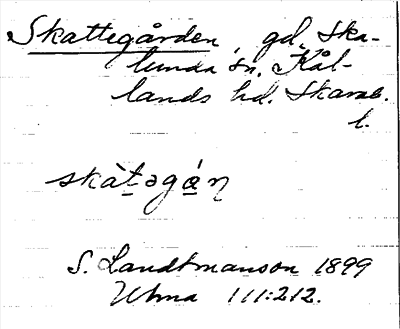 Skattegården, gd, Ska-
lunda sn. Kål-
lands hd. Skarab.
l.
skàt̲əgá̲n̥
S. Landtmanson 1899
Ulma 111:212.